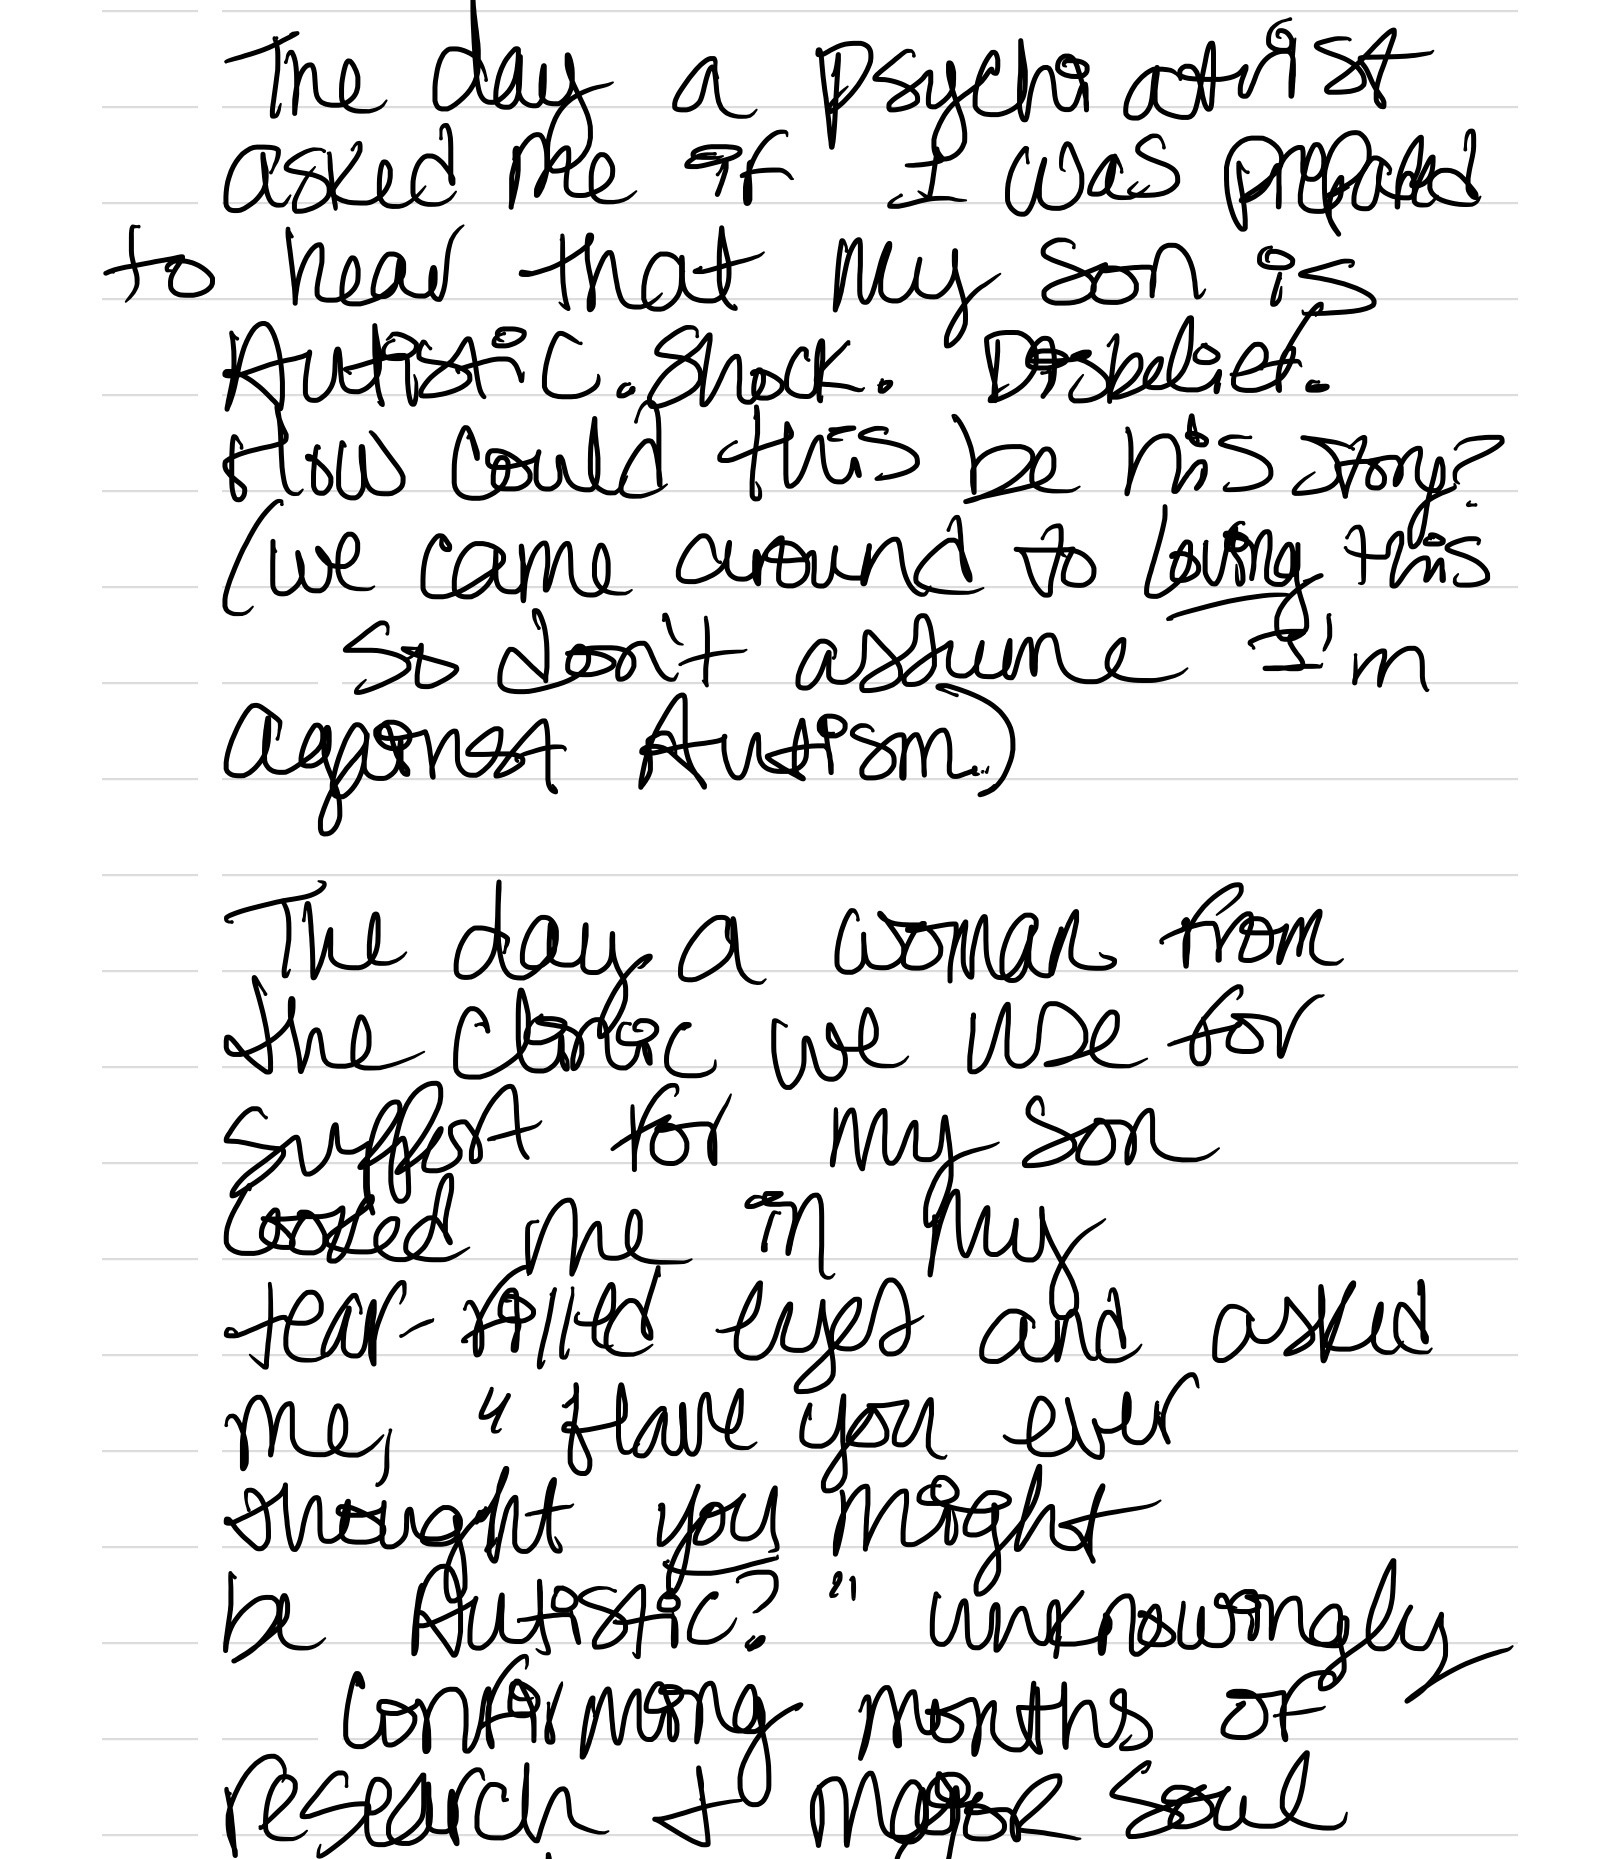 The day a psychiatrist
asked me if I was prepared
to hear that my son is
Autistic. Shock. Disbelief.
How could this be his story?
(we came around to loving this
so don't assume I'm
against Autism.)
The day a woman from
the clinic we use for
support for my son
looked me in my
tear-filled eyes and asked
me, "Have you ever
thought you might
be Autistic?" unknowingly
confirming months of
research + major soul